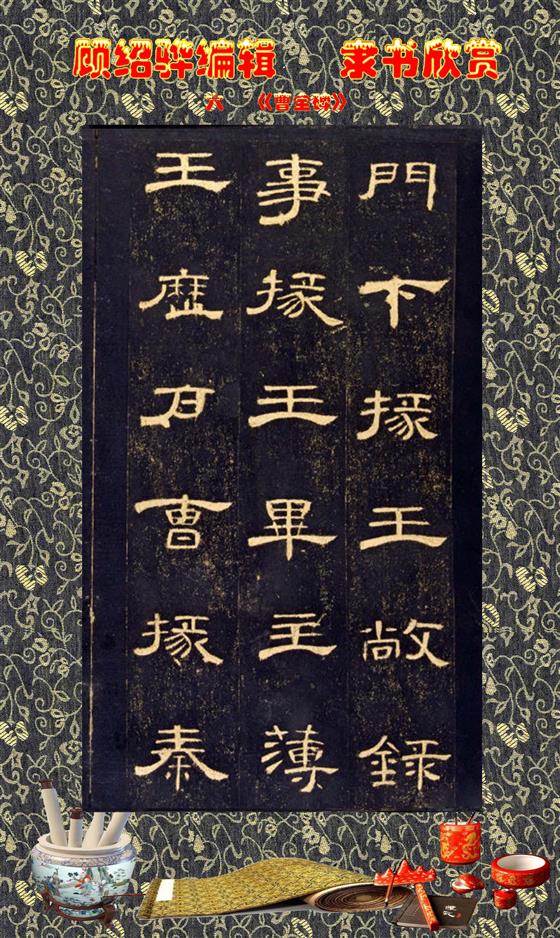 顾绍骅编辑 隶书欣赏
六 《曹全碑》
門下掾王敞録
事掾王畢主薄
王歴户曹掾秦